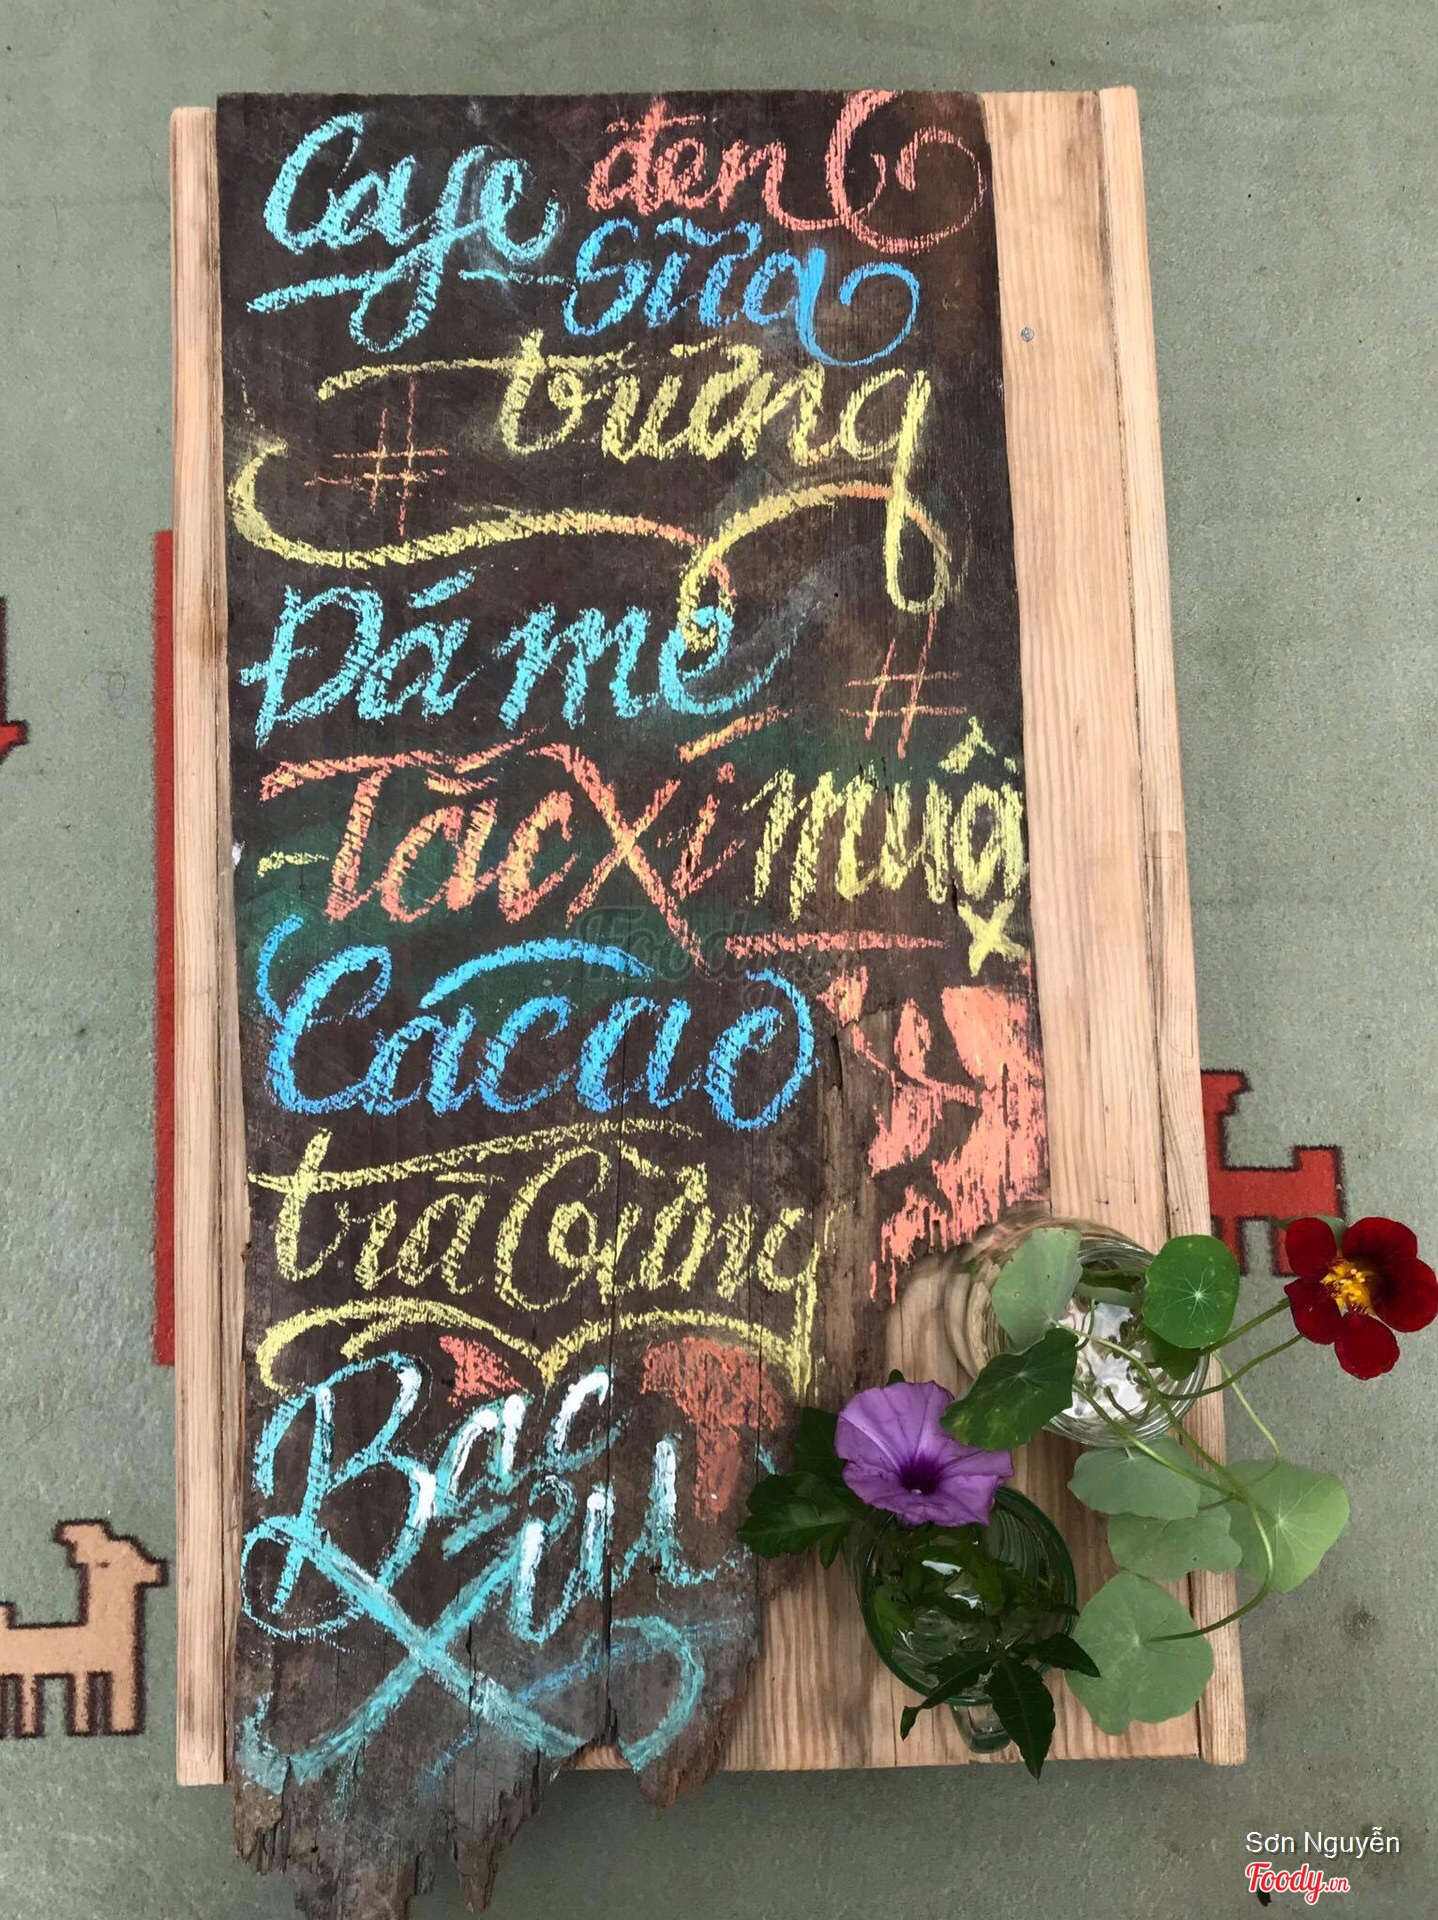 Cafe đen
sữa
trứng
#
Đá me
#
Tắc xí muội
Cacao
trà Gừng
Bạc xỉu
Foody.vn
Sơn Nguyễn
Foody.vn